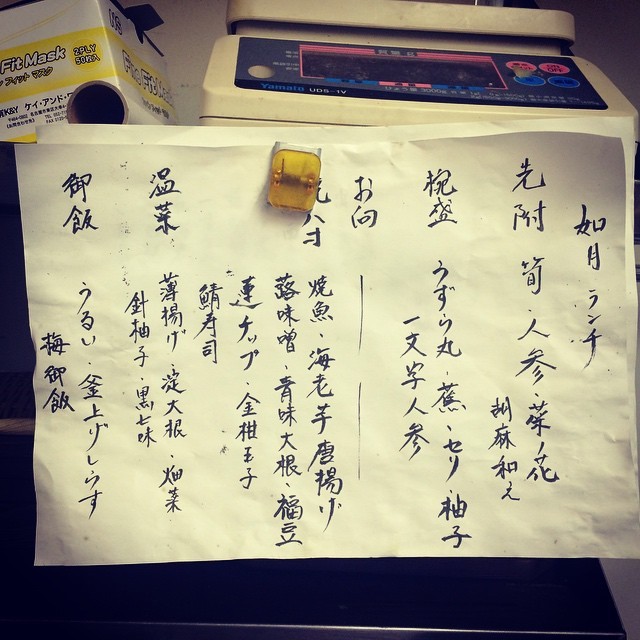 如月 ランチ
先附 筍・人参・菜ノ花
胡麻和え
椀盛 うずら丸・蕪・セリ 柚子
一文字人参
お向
八寸 焼魚・海老芋唐揚げ
蕗味噌・青味大根・福豆
蓮チップ・金柑玉子
鯖寿司
温菜 薄揚げ・淀大根・畑菜
針柚子・黒七味
御飯 うるい・釜上げしらす
梅御飯
Fit Mask
2PLY
50枚入
フィット マスク
ケイ・アンド・
Yamato UDS-1V